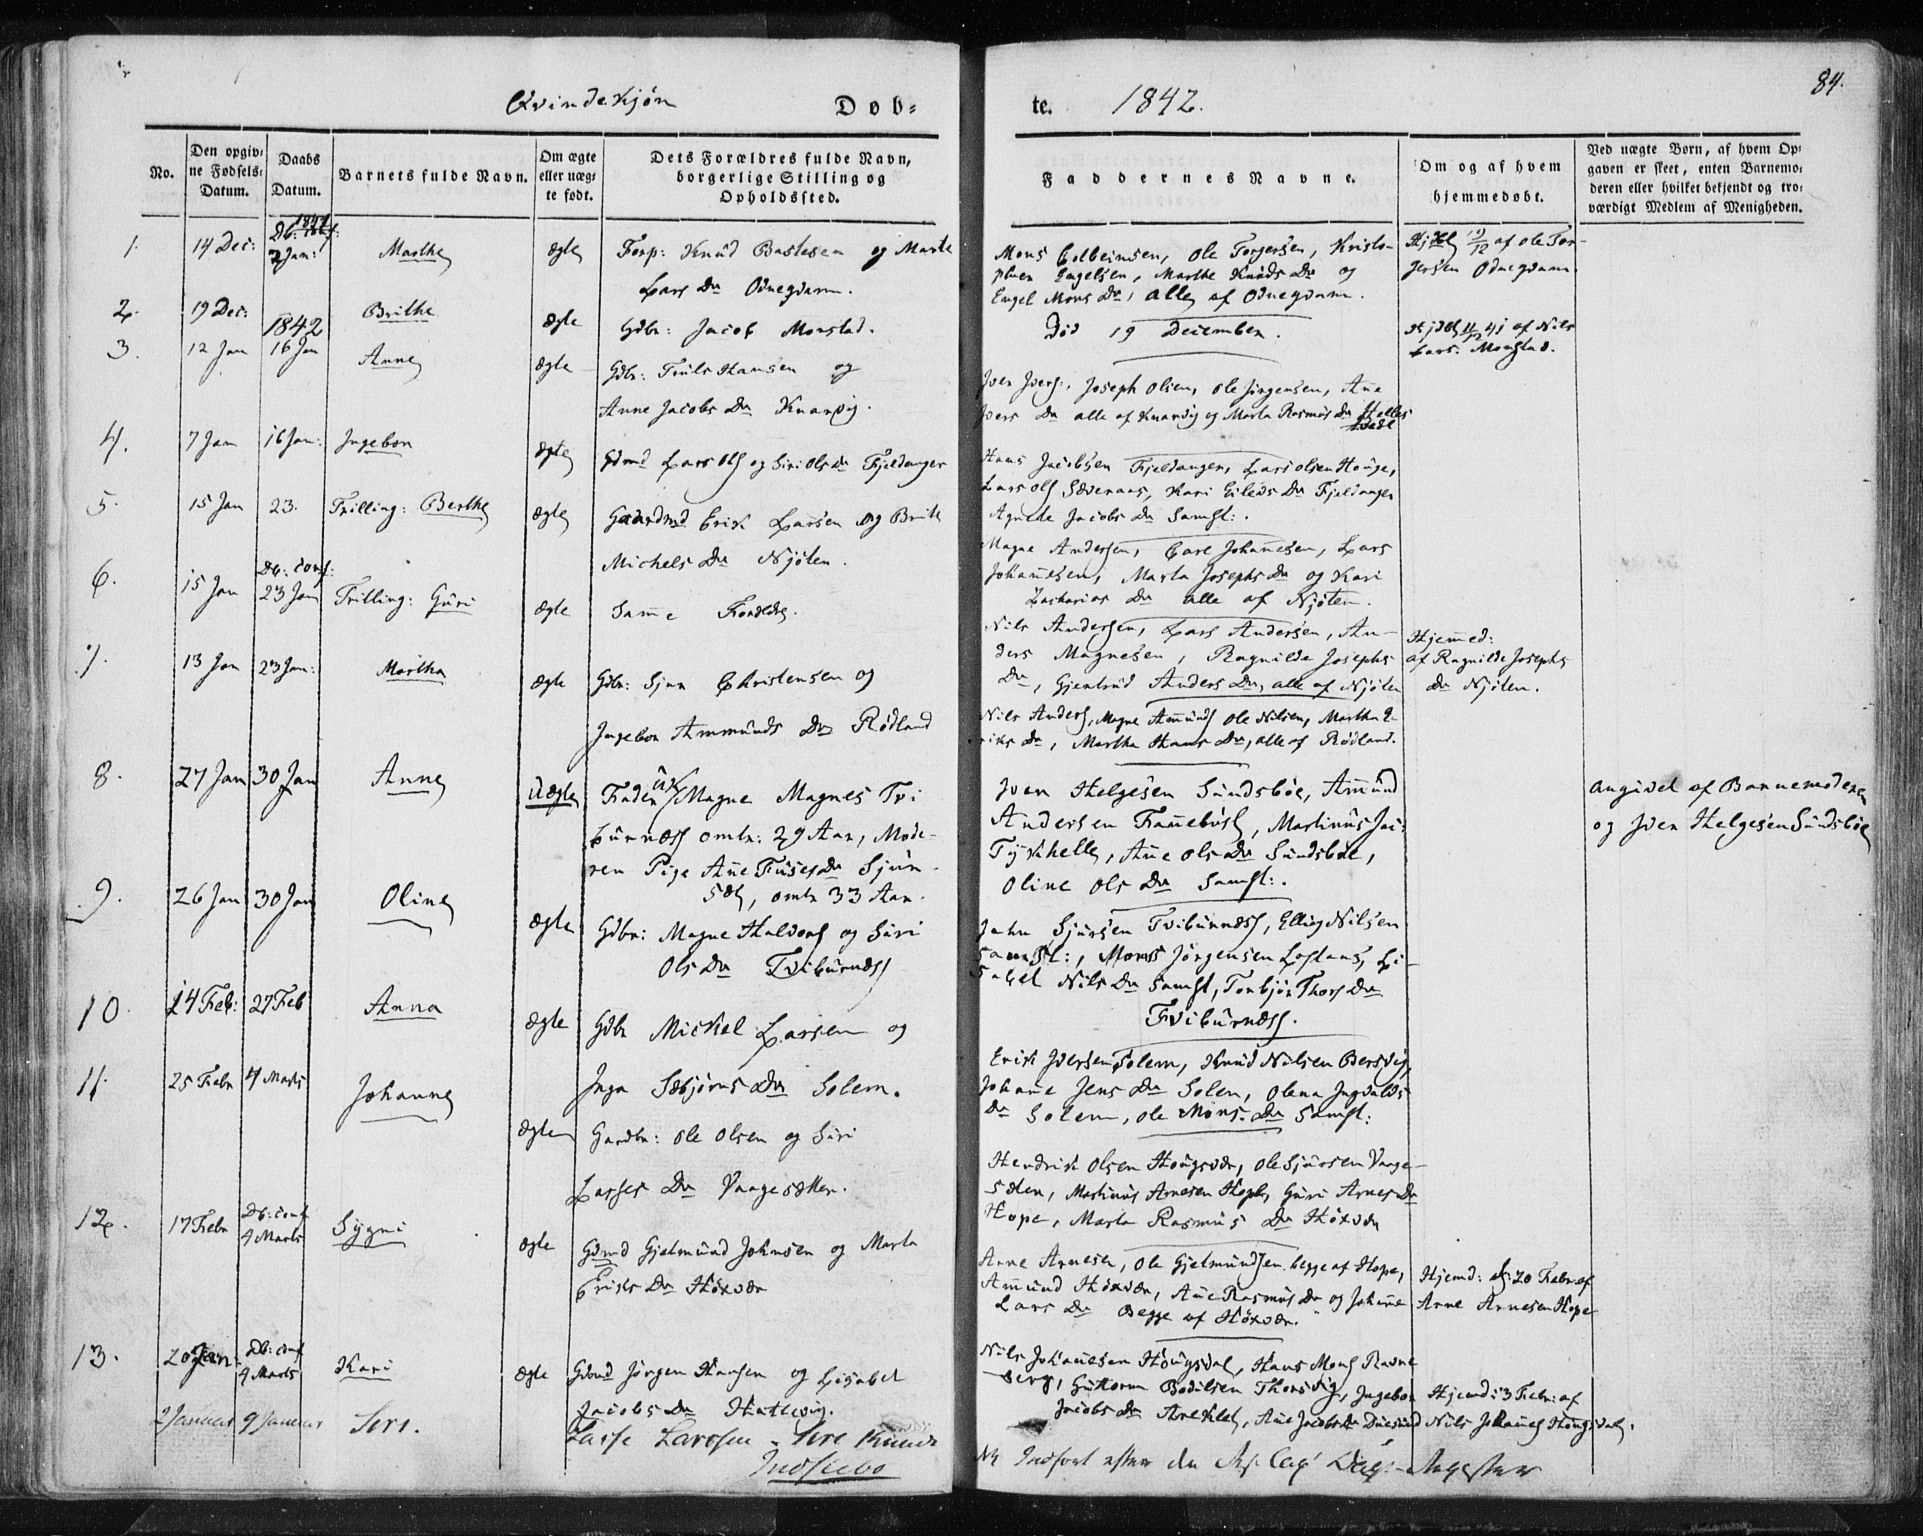 84.
Qvindekjøn Døb= te. 1842.
No.
Den opgiv=
ne Fødsels=
Datum.
Daabs
Datum.
Barnets fulde Navn.
Om ægte
eller uæg=
te født.
Dets Forældres fulde Navn,
borgerlige Stilling og
Opholdssted.
Faddernes Navne.
Om og af hvem
hjemmedøbt.
Ved uægte Børn, af hvem Op=
gaven er skeet, enten Barnemo=
deren eller hvilket bekjendt og tro=
værdigt Medlem af Menigheden.
1. 14 Dec: 2 Jan: Marthe ægte Forp: Knud Bastesen og Marte
Lars Dr Odnegdam.
Mons Colbeinsen, Ole Torgersen, Kristo-
pher Engelsen, Marthe Knuds Dr og
Engel Mons Dr, alle af Odnegdam.
Hjdbt 19/12 af Ole Tor-
gersen Odnegdam
2. 19 Dec: Brithe ægte Gdbr: Jacob Monstad.
Død 19 December.
Hjdbt 11/12 41 af Nils
Lars: Monstad.
1842
3. 12 Jan 16 Jan Anne ægte Gdbr: Truls Hansen og
Anne Jacobs Dr Knarvig.
Iver Ivers:, Joseph Olsen, Ole Jörgensen, Ane
Ivers Dr alle af Knarvig og Marta Rasmus Dr
4. 7 Jan 16 Jan: Ingebor ægte Gdmd Lars Ols og Siri Ols dr Fjeldanger
Hans Jacobsen Fjeldanger, Lars Olsen Houge,
Lars Ols Sævernaas, Kari Dr Fjeldanger
Agnete Jacobs Dr Samst:.
5. 15 Jan 23. Trilling: Berthe ægte Gaardmd Erik Larsen og Brite
Michels Dr Njöten.
Magne Andersen, Carl Johannesen, Lars
Johannesen, Marta Josephs Dr og Kari
Zacharias Dr alle af Njöten.
6. 15 Jan Db: conf: 23 Jan Trilling: Guri ægte Samme Forældre.
Nils Andersen, Lars Andersen, An-
ders Magnesen, Ragnilde Josephs
Dr, Gjertrud Anders Dr, alle af Njöten
Hjemmed:
af Ragnilde Josephs
Dr Njöten.
7. 13 Jan 23 Jan: Martha ægte Gdbr: Sjur Christensen og
Ingebor Ammunds Dr Rödland
Nils Anders, Magne Amunds Ole Nilsen, Martha E-
riks Dr, Martha Hans Dr, alle af Rödland.
8. 27 Jan 30 Jan Anne Uægte Faderen Magne Magnes Tvi
burnæss omtr: 29 Aar, Mode-
ren Pige Ane Dr Sjur
omtr 33 Aar.
Iver Helgesen Sundsböe, Amund
Andersen Tannebust, Martinus Jac:
Tyshelle, Ane Ols Dr Sundsböe,
Oline Ols Dr Samst:.
angivet af Barnemoderen
og Iver Helgesen Sundsböe
9. 26 Jan 30 Jan Oline ægte Gdbr: Magne Haldors og Siri
Ols Dr Tviburnæss
John Sjursen Tviburnæss, Elling Nilsen
Samst:, Mons Jörgensen Li-
sabet Nils Dr Samst, Torbjör Thors Dr
Tviburnæss.
10. 14 Feb: 27 Feb Anna ægte Gdbr Mickel Larsen og
Inga Sæbjörns Dr Solem.
Erik Iversen Solem, Knud Nilsen
Johanne Jens Dr Solem, Olena Ingvalds
Dr Solem, Ole Mons Dr Samst:
11. 25 Febr 4 Marts Johanne ægte Gardbr: Ole Olsen og Siri
Lasses Dr Vaagesætter.
Hendrik Olsen Hougsvær, Ole Sjursen Vaage-
sæter, Martinus Arnesen Hope, Guri Arnes Dr
Hope, Marta Rasmus Dr Höxvær
12. 17 Febr Db: conf 4 Marts Sygni ægte Gdmd Gjelmund Johnsen og Marta
Eriks Dr Höxvær
Arne Arnesen, Ole Gjelmundsen begge af Hope,
Amund Höxvær, Ane Rasmus Dr og Johanne
Lars Dr Begge af Höxvær.
Hjemd: d: 20 Febr: af
Arne Arnesen Hope
13. 20 Jan: Db: conf 4 Marts Kari ægte Gdmd Jörgen Hansen og Lisabet
Jacobs Dr Hattevig.
Nils Johannesen Hougsdal, Hans Mons Ravne
berg, Guttorm Bodilsen Thorsvig, Ingebor
Jacobs Dr Areklet, Ane Jacobs Dr
Hjemd: 3 Febr: af
Nils Johannes Hougsdal.
2 Januar 9 Januar Siri. Lasse Larssen - Sire Knuds
Indført efter